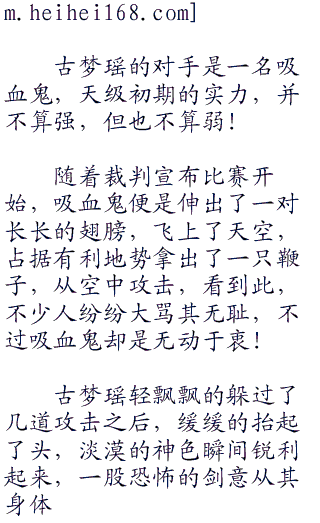 m.heihei168.com]
古梦瑶的对手是一名吸
血鬼，天级初期的实力，并
不算强，但也不算弱！
随着裁判宣布比赛开
始，吸血鬼便是伸出了一对
长长的翅膀，飞上了天空，
占据有利地势拿出了一只鞭
子，从空中攻击，看到此，
不少人纷纷大骂其无耻，不
过吸血鬼却是无动于衷！
古梦瑶轻飘飘的躲过了
几道攻击之后，缓缓的抬起
了头，淡漠的神色瞬间锐利
起来，一股恐怖的剑意从其
身体